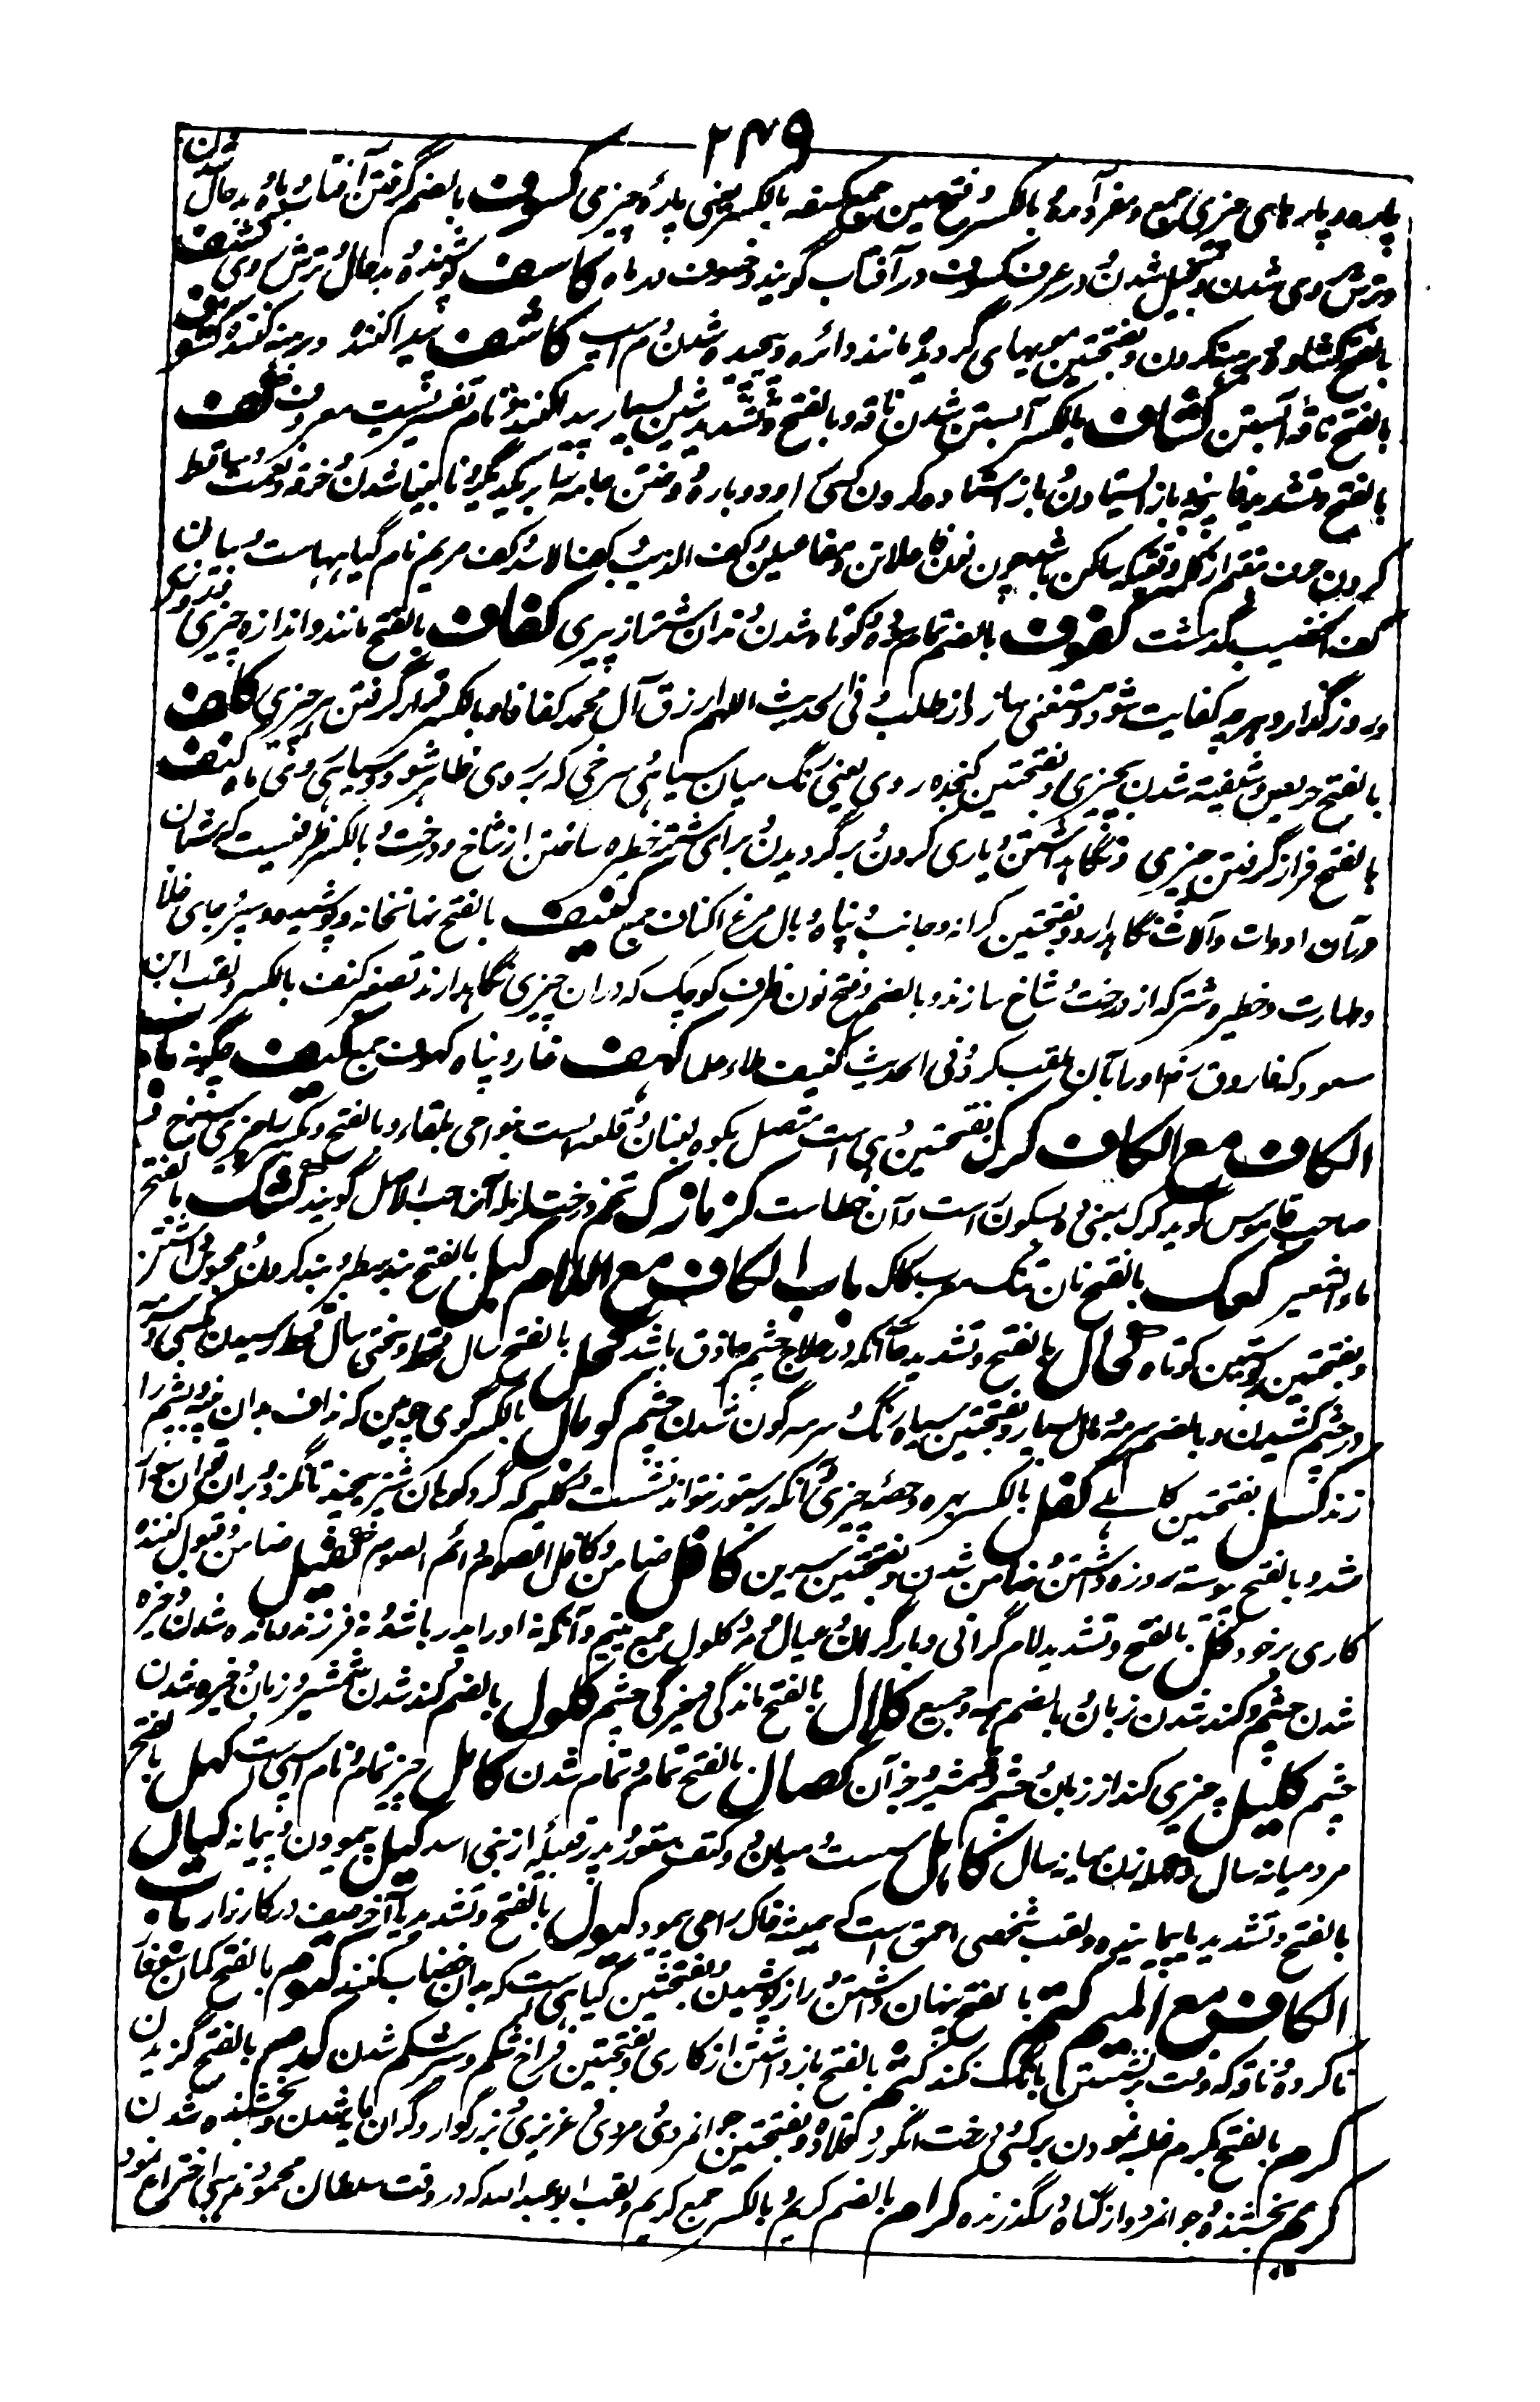 ۲۴۹
پاره پاره های چیزی جمع و مفرد آمده بالکسر و فتح سین جمع کسفه بالکسر یعنی پارهٔ چیزی کسوف بالضم گرفتن آفتاب و ماه و بدحال شدن
و ترش روی شدن و در عرف کسوف در آفتاب گویند و خسوف در ماه کاسف پوشنده و بدحال و ترش روی کشف
بالفتح کشادن و برهنه کردن و بفتحتین مویهای گردیده مانند دائره و پیچیده شدن دم اسپ کاشف پیدا کننده و برهنه کننده کشوف
بالفتح ناقه آبستن کشاف بالکسر آبستن شدن ناقه و بالفتح و تشدید شین بسیار پیدا کننده و نام تفسیریست معروف کف
بالفتح و تشدید فا پنجه و باز ایستادن و باز استاده کردن کسی را و دوباره دوختن جامه را بر یکدیگر و نابینا شدن و خرفه و نعمت و ساقط
کردن حرف هفتم از کلمه وقتیکه ساکن باشد چون نون فاعلاتن و مفاعیلن و کف الذیب و کف الاسد و کف مریم نام گیاهیهاست و بیان
کف الخضیب گذشت کفوف بالضم تمام شدن و کوتاه شدن دندان شتر از پیری کفاف بالفتح مانند و اندازه چیزی و روزی
و روزگذار و هرچه کفایت شود و مستغنی سازد از طلب و فی الحدیث اللهم ارزق آل محمد کفافا و بالکسر قرار گرفتن هر چیزی کلف
بالفتح حریص و شیفته شدن بچیزی و بفتحتین کنجده روی یعنی رنگ میان سیاهی و سرخی که بر روی ظاهر شود و سیاهی روی ماه کنف
بالفتح فراز گرفتن چیزی و نگاه داشتن و یاری کردن و برگردیدن و برای شتر خطیره ساختن از شاخ درخت و بالکسر ظرفیست که شبان
در آن ادوات و آلات نگاهدارد و بفتحتین کرانه و جانب و پناه و بال مرغ اکناف جمع کنیف بالفتح نهانخانه و پوشیده و سپر و جای خلا
و طهارت و خطیره شتر که از درخت و شاخ سازند و بالضم و فتح نون ظرف کوچک که دران چیزی نگاهدارند تصغیر کنف بالکسر و لقب ابن
مسعود که فاروق رض او را بآن ملقب کرد و فی الحدیث کنیف ملاء علما کهف غار و پناه کهوف جمع کیف چگونه باب
الکاف مع الکاف کرک بفتحتین دهی است متصل بکوه لبنان و قلعه ایست بنواحی بلقاء و بالفتح و کسر را چیزی سرخ و
صاحب قاموس گوید کرک بمعنی ده بسکون راست و آن خطاست کزمازک ثمر درخت گز که آنرا حب الاثل گویند کشک بالفتح
ماء الشعیر کعک بالفتح نان تنک معرب کاک باب الکاف مع اللام کبل بالفتح بند سطبر و بند کردن و محبوس داشتن
و بفتحتین پوستین کوتاه کحال بالفتح و تشدید حا آنکه در علاج چشم حاذق باشد کحل بالفتح سال قحط و سختی سال و قحط رسیدن کسی را و سرمه
در چشم کشیدن و بالضم سرمه و مال بسیار و بفتحتین سیاه رنگ و سرمه گون شدن چشم کومال بالکسر گوی چوبین که نداف بدان پنبه و پشم را
زند کسل بفتحتین کاهلی کفل بالکسر بهره و حصهٔ چیزی و آنکه بر ستور نتواند نشست و گلیم که گرد کوهان شتر پیچند تا نلغزد و بران توان سوار
شد و بالفتح پیوسته روزه داشتن و ضامن شدن و بفتحتین سرین کافل ضامن و کافل الصوم دائم الصوم کفیل ضامن و قبول کننده
کاری بر خود کل بالفتح و تشدید لام گرانی و بارگران و عیال مرد و کلول جمع و یتیم و آنکه نه او را پدر باشد و نه فرزند و مانده شدن و خیره
شدن چشم و کند شدن زبان و بالضم همه و جمیع کلال بالفتح ماندگی و خیرگی چشم کلول بالضم کند شدن شمشیر و زبان و خیره شدن
چشم کلیل چیزی کند از زبان و چشم و شمشیر و جز آن کمال بالفتح تمام و تمام شدن کامل چیز تمام و نام اسپی است کهل بالفتح
مرد میانه سال و کهله زن میانه سال کاهل سست و میان دو کتف ستور و پدر قبیله از بنی اسد کیل پیمودن و پیمانه کیال
بالفتح و تشدید یا پیماینده و لقب شخصی احمق است که همیشه خاک را می پیمود کیول بالفتح و تشدید یا آخر صف در کارزار باب
الکاف مع المیم کتم بالفتح پنهان داشتن و راز پوشیدن و بفتحتین گیاهی است که بدان خضاب کنند کتوم بالفتح کمان شکاف
ناکرده و ناقه که وقت برنشستن بانگ نکند کثم بالفتح بازداشتن از کاری و بفتحتین فراخ شکم و سیر شکم شدن کدم بالفتح گزیدن
کرم بالفتح بکرم غلبه نمودن بر کسی و درخت انگور و قلاده و بفتحتین جوانمردی و مردمی و عزیزی و بزرگوار و گران مایه شدن و بخشنده شدن
کریم بخشنده و جوانمرد و از گناه درگذرنده کرام بالضم کریم و بالکسر جمع کریم و لقب ابو عبدالله که در وقت سلطان محمود مذهبی اختراع نمود